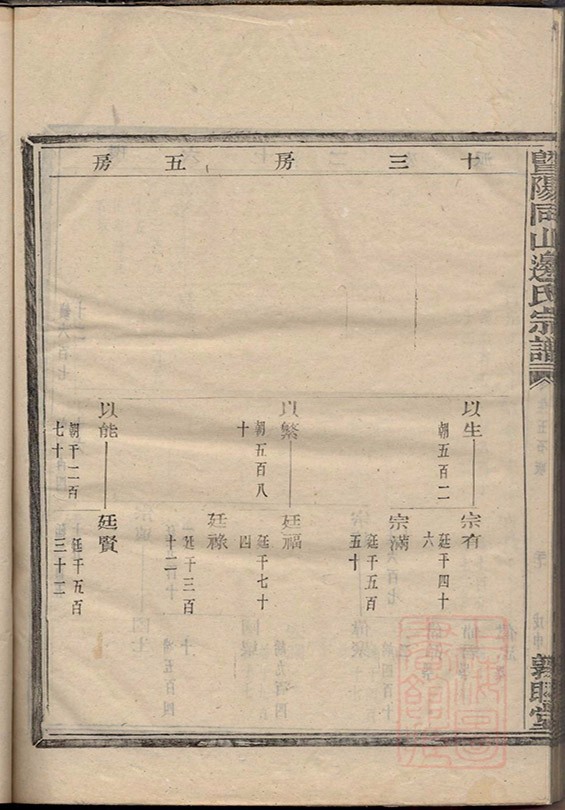 暨陽同山邊氏宗譜
十三房五房
以生
朝五百二
宗有
廷千四十
六
宗滿
廷千五百
五十
以繁
朝五百八
十
廷福
廷千七十
四
廷祿
廷千三百
十二
以能
朝千二百
七十
廷賢
廷千五百
三十二
敦睦堂